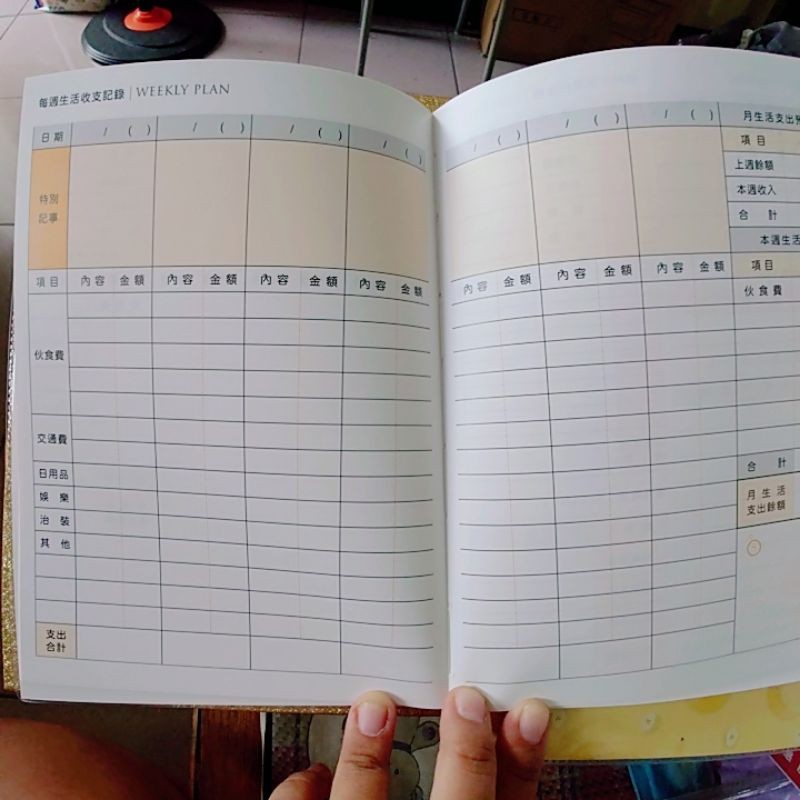 每週生活收支記錄 | WEEKLY PLAN
日期 / ( ) / ( ) / ( ) / ( ) / ( ) / ( ) / (
特別
記事
項目 內容 金額 內容 金額 內容 金額 內容 金額 內容 金額 內容 金額 內容 金額
伙食費
交通費
日用品
娛樂
治裝
其他
支出
合計
月生活支出預
項目
上週餘額
本週收入
合計
本週生活
項目
伙食費
合計
月生活
支出餘額